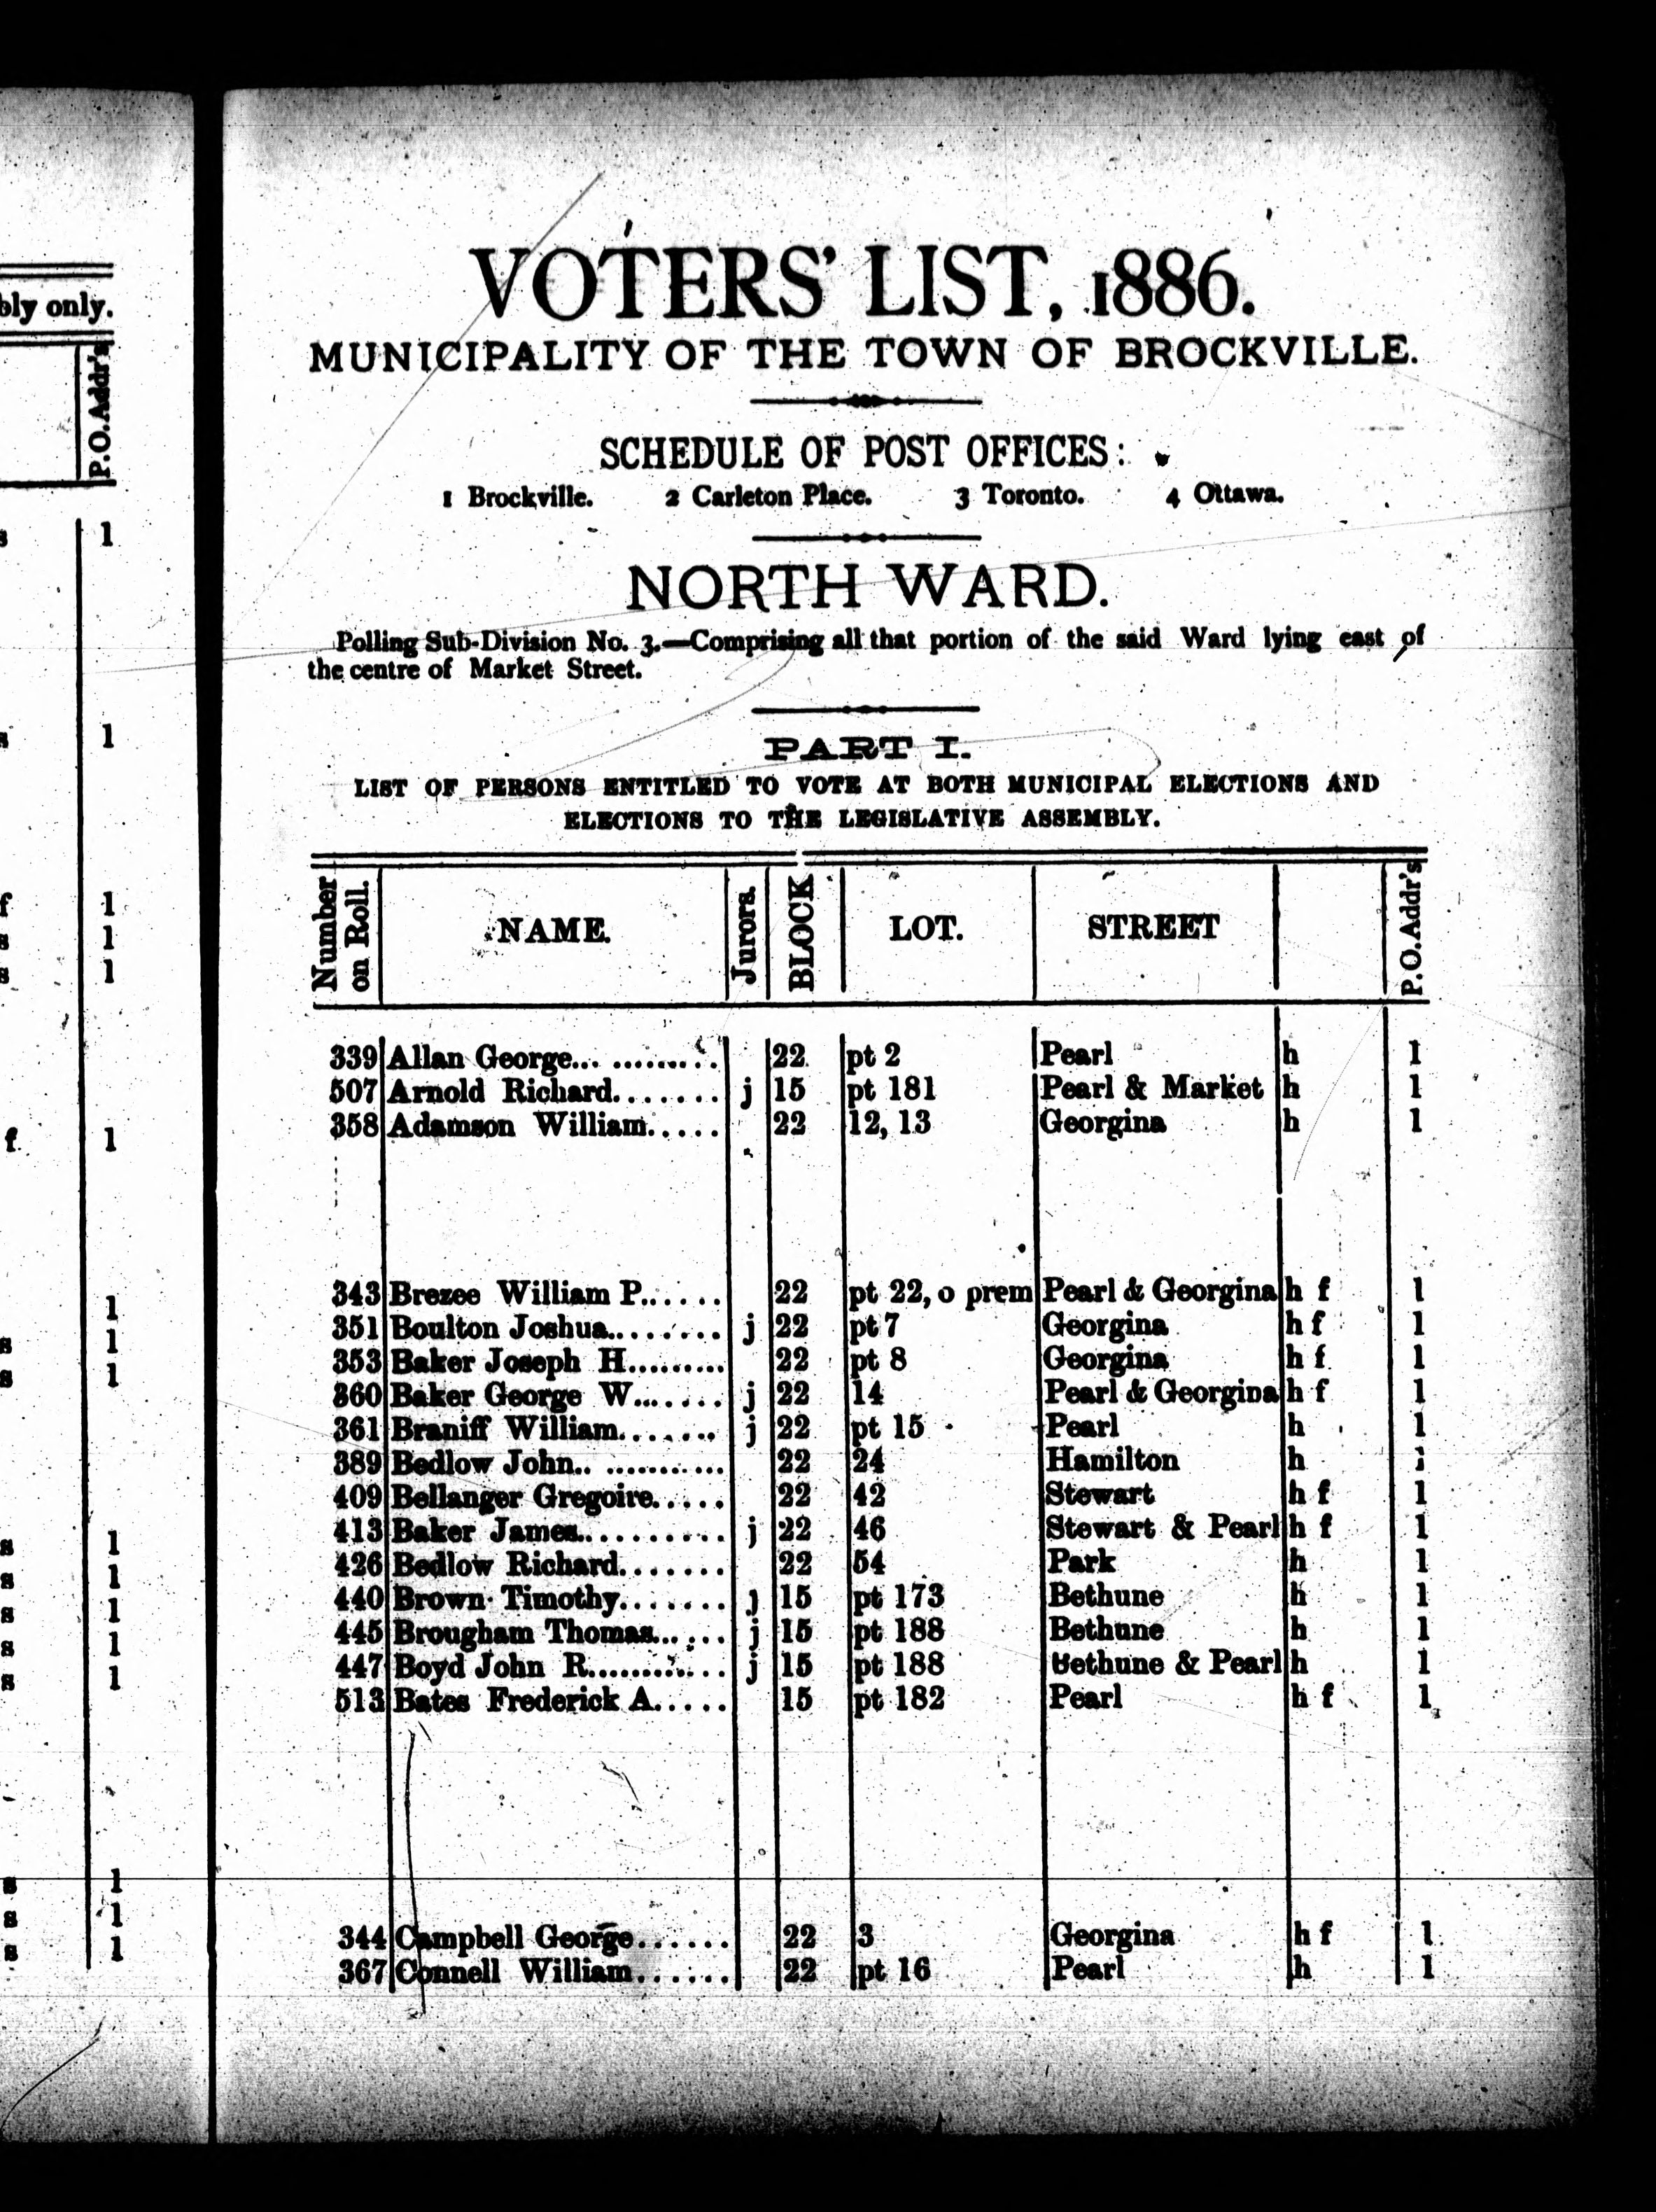 bly only.
P.O.Addr's
s 1
s 1
f 1
s 1
s 1
f. 1
1
s 1
s 1
s 1
s 1
s 1
s 1
s 1
s 1
s 1
s 1
VOTERS' LIST, 1886.
MUNICIPALITY OF THE TOWN OF BROCKVILLE.
SCHEDULE OF POST OFFICES:
1 Brockville. 2 Carleton Place. 3 Toronto. 4 Ottawa.
NORTH WARD.
Polling Sub-Division No. 3.—Comprising all that portion of the said Ward lying east of
the centre of Market Street.
PART I.
LIST OF PERSONS ENTITLED TO VOTE AT BOTH MUNICIPAL ELECTIONS AND
ELECTIONS TO THE LEGISLATIVE ASSEMBLY.
Number on Roll. NAME. Jurors. BLOCK LOT. STREET P.O.Addr's
339 Allan George... .......... 22 pt 2 Pearl h 1
507 Arnold Richard....... j 15 pt 181 Pearl & Market h 1
358 Adamson William..... 22 12, 13 Georgina h 1
343 Brezee William P...... 22 pt 22, o prem Pearl & Georgina h f 1
351 Boulton Joshua......... j 22 pt 7 Georgina h f 1
353 Baker Joseph H......... 22 pt 8 Georgina h f 1
360 Baker George W....... j 22 14 Pearl & Georgina h f 1
361 Braniff William....... j 22 pt 15 Pearl h 1
389 Bedlow John.. ........... 22 24 Hamilton h 1
409 Bellanger Gregoire..... 22 42 Stewart h f 1
413 Baker James........... j 22 46 Stewart & Pearl h f 1
426 Bedlow Richard....... 22 54 Park h 1
440 Brown Timothy....... j 15 pt 173 Bethune h 1
445 Brougham Thomas...... j 15 pt 188 Bethune h 1
447 Boyd John R............ j 15 pt 188 Bethune & Pearl h 1
513 Bates Frederick A..... 15 pt 182 Pearl h f 1
344 Campbell George...... 22 3 Georgina h f 1
367 Connell William...... 22 pt 16 Pearl h 1